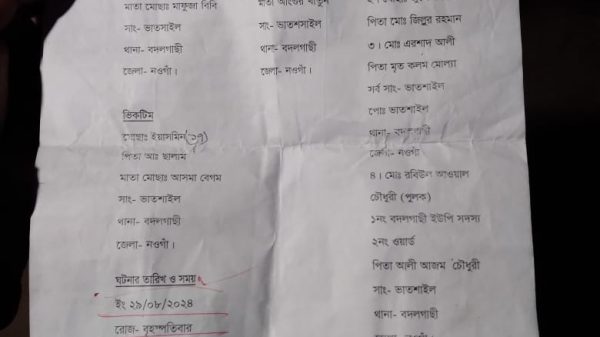 মাতা মোছাঃ মাফুজা বিবি
সাং- ভাতসাইল
থানা- বদলগাছী
জেলা- নওগাঁ।
সাং- ভাতশসাইল
থানা- বদলগাছী
জেলা- নওগাঁ।
পিতা মোঃ জিলুর রহমান
৩। মোঃ এরশাদ আলী
পিতা মৃত কলম মোল্যা
সর্ব সাং- ভাতশাইল
পোঃ ভাতশাইল
থানা- বদলগাছী
জেলা- নওগাঁ
৪। মোঃ রবিউল আওয়াল
চৌধুরী (পুলক)
১নং বদলগাছী ইউপি সদস্য
২নং ওয়ার্ড
পিতা আলী আজম চৌধুরী
সাং- ভাতশাইল
থানা- বদলগাছী
ভিকটিম
মোছাঃ ইয়াসমিন
পিতা আঃ ছালাম
মাতা মোছাঃ আসমা বেগম
সাং- ভাতশাইল
থানা- বদলগাছী
জেলা- নওগাঁ।
ঘটনার তারিখ ও সময়
ইং ২৯/০৮/২০২৪
রোজ- বৃহস্পতিবার